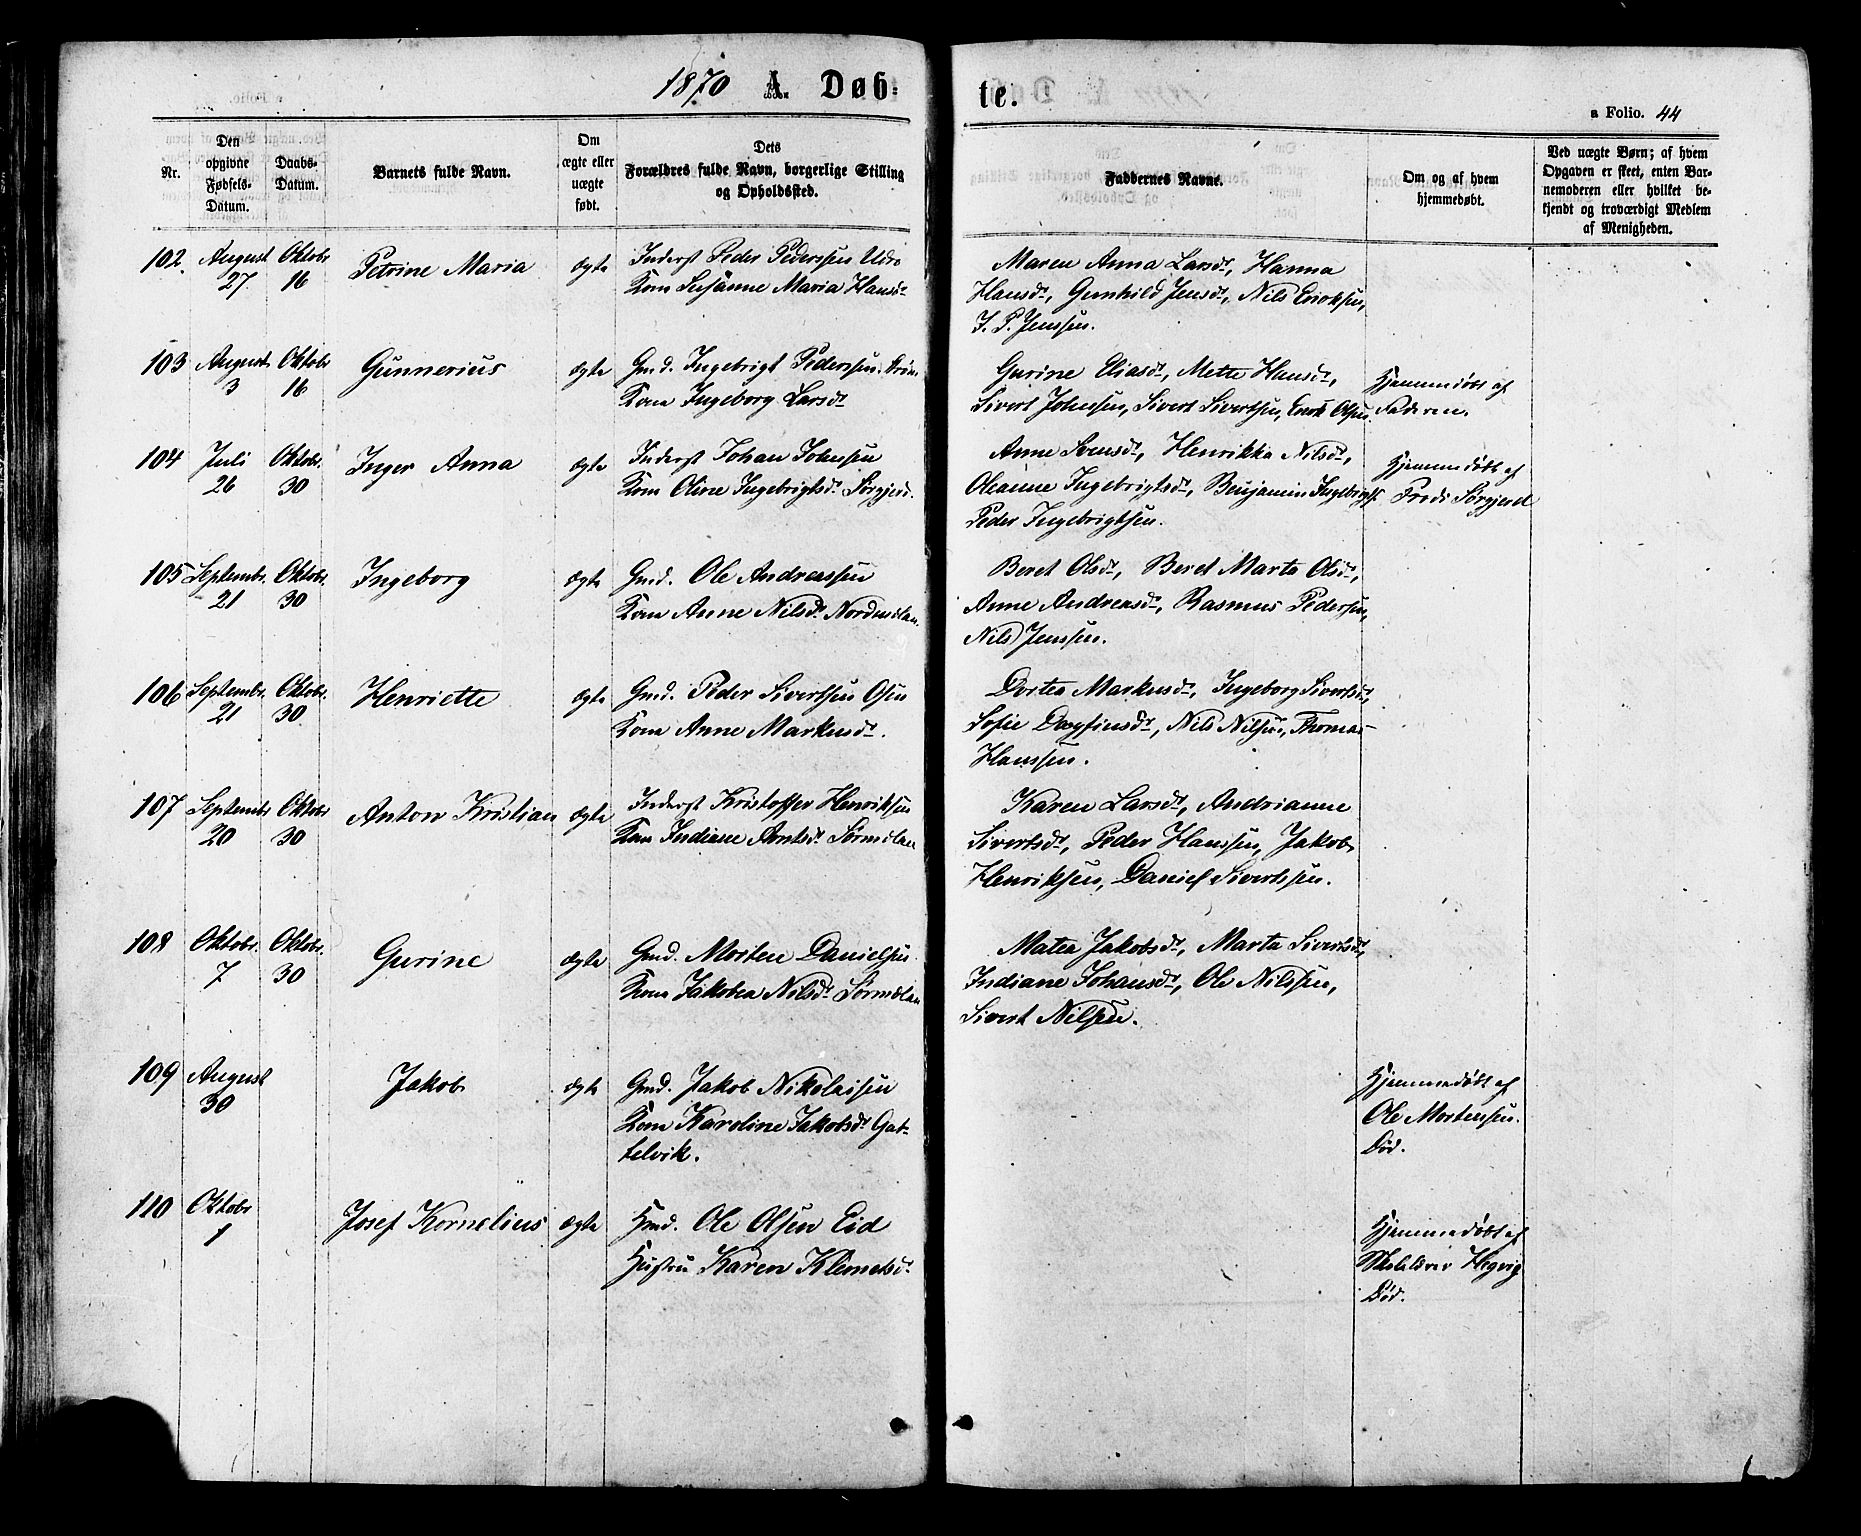 1870 A. Døb=
te.
a Folio. 44
Nr.
Den opgivne Fødsels-Datum.
Daabs-Datum.
Barnets fulde Navn.
Om ægte eller uægte født.
Dets Forældres fulde Navn, borgerlige Stilling og Opholdssted.
Faddernes Navne.
Om og af hvem hjemmedøbt.
Ved uægte Børn; af hvem Opgaven er skeet, enten Barnemoderen eller hvilket bekjendt og troværdigt Medlem af Menigheden.
102. August 27 Oktobr 16 Petrine Maria ægte
Inderst Peder Pederssen
Kone Susanne Maria Hansdr
Maren Anna Larsdr, Hanna
Hansdr, Gunhild Jensdr, Nils Erikssen,
J. P. Jenssen.
103 August 3 Oktobr 16 Gunnerius ægte
Gmd. Ingebrigt Pederssen
Kone Ingeborg Larsdr
Gurine Eliasdr, Mette Hansdr,
Sivert Johnsen, Sivert Sivertsen, Erik Olsen.
Hjemmedøbt af
Faderen.
104 Juli 26 Oktobr. 30 Inger Anna ægte
Inderst Johan Johnsen
Kone Oline Ingebrigtsdr Sørgjerd.
Anne Svensdr, Henrikka Nilsdr,
Oleanne Ingebrigtsdr, Benjamin Ingebrigts.
Peder Ingebrigtsen.
Hjemmedøbt af
Sørgjerd
105 Septembr. 21 Oktobr. 30 Ingeborg ægte
Gmd. Ole Andreassen
Kone Anne Nilsdr Nordmelan.
Beret Olsdr, Beret Marta Olsdr,
Anne Andreasdr, Rasmus Pedersen,
Nils Jenssen.
106 Septembr. 21 Oktobr. 30 Henriette ægte
Gmd. Peder Sivertsen Osen
Kone Anne Markusdr.
Dortea Markusdr, Ingeborg Sivertsdr,
Sofie Dagfinsdr, Nils Nilsen, Thomas
Hanssen.
107 Septembr 20 Oktobr 30 Anton Kristian ægte
Inderst Kristoffer Henriksen
Kone Indiane Arntsdr Sørmelan
Karen Larsdr, Andrianne
Sivertsdr, Peder Hanssen, Jakob
Henriksen, Daniel Sivertssen.
108 Oktobr. 7 Oktobr. 30 Gurine ægte
Gmd. Morten Danielsen
Kone Jakobea Nilsdr Sørmelan
Matea Jakobsdr, Marta Sivertsdr,
Indiane Johansdr, Ole Nilssen,
Sivert Nilsen.
109 August 30 Jakob ægte
Gmd. Jakob Nikolaisen
Kone Karoline Jakobsdr Gat-
telvik.
Hjemmedøbt af
Ole Mortensen.
Død.
110 Oktobr 1 Josef Kornelius ægte
Hmd. Ole Olsen Eid
Hustru Karen Klemetsdr
Hjemmedøbt af
Hegvig
Død.